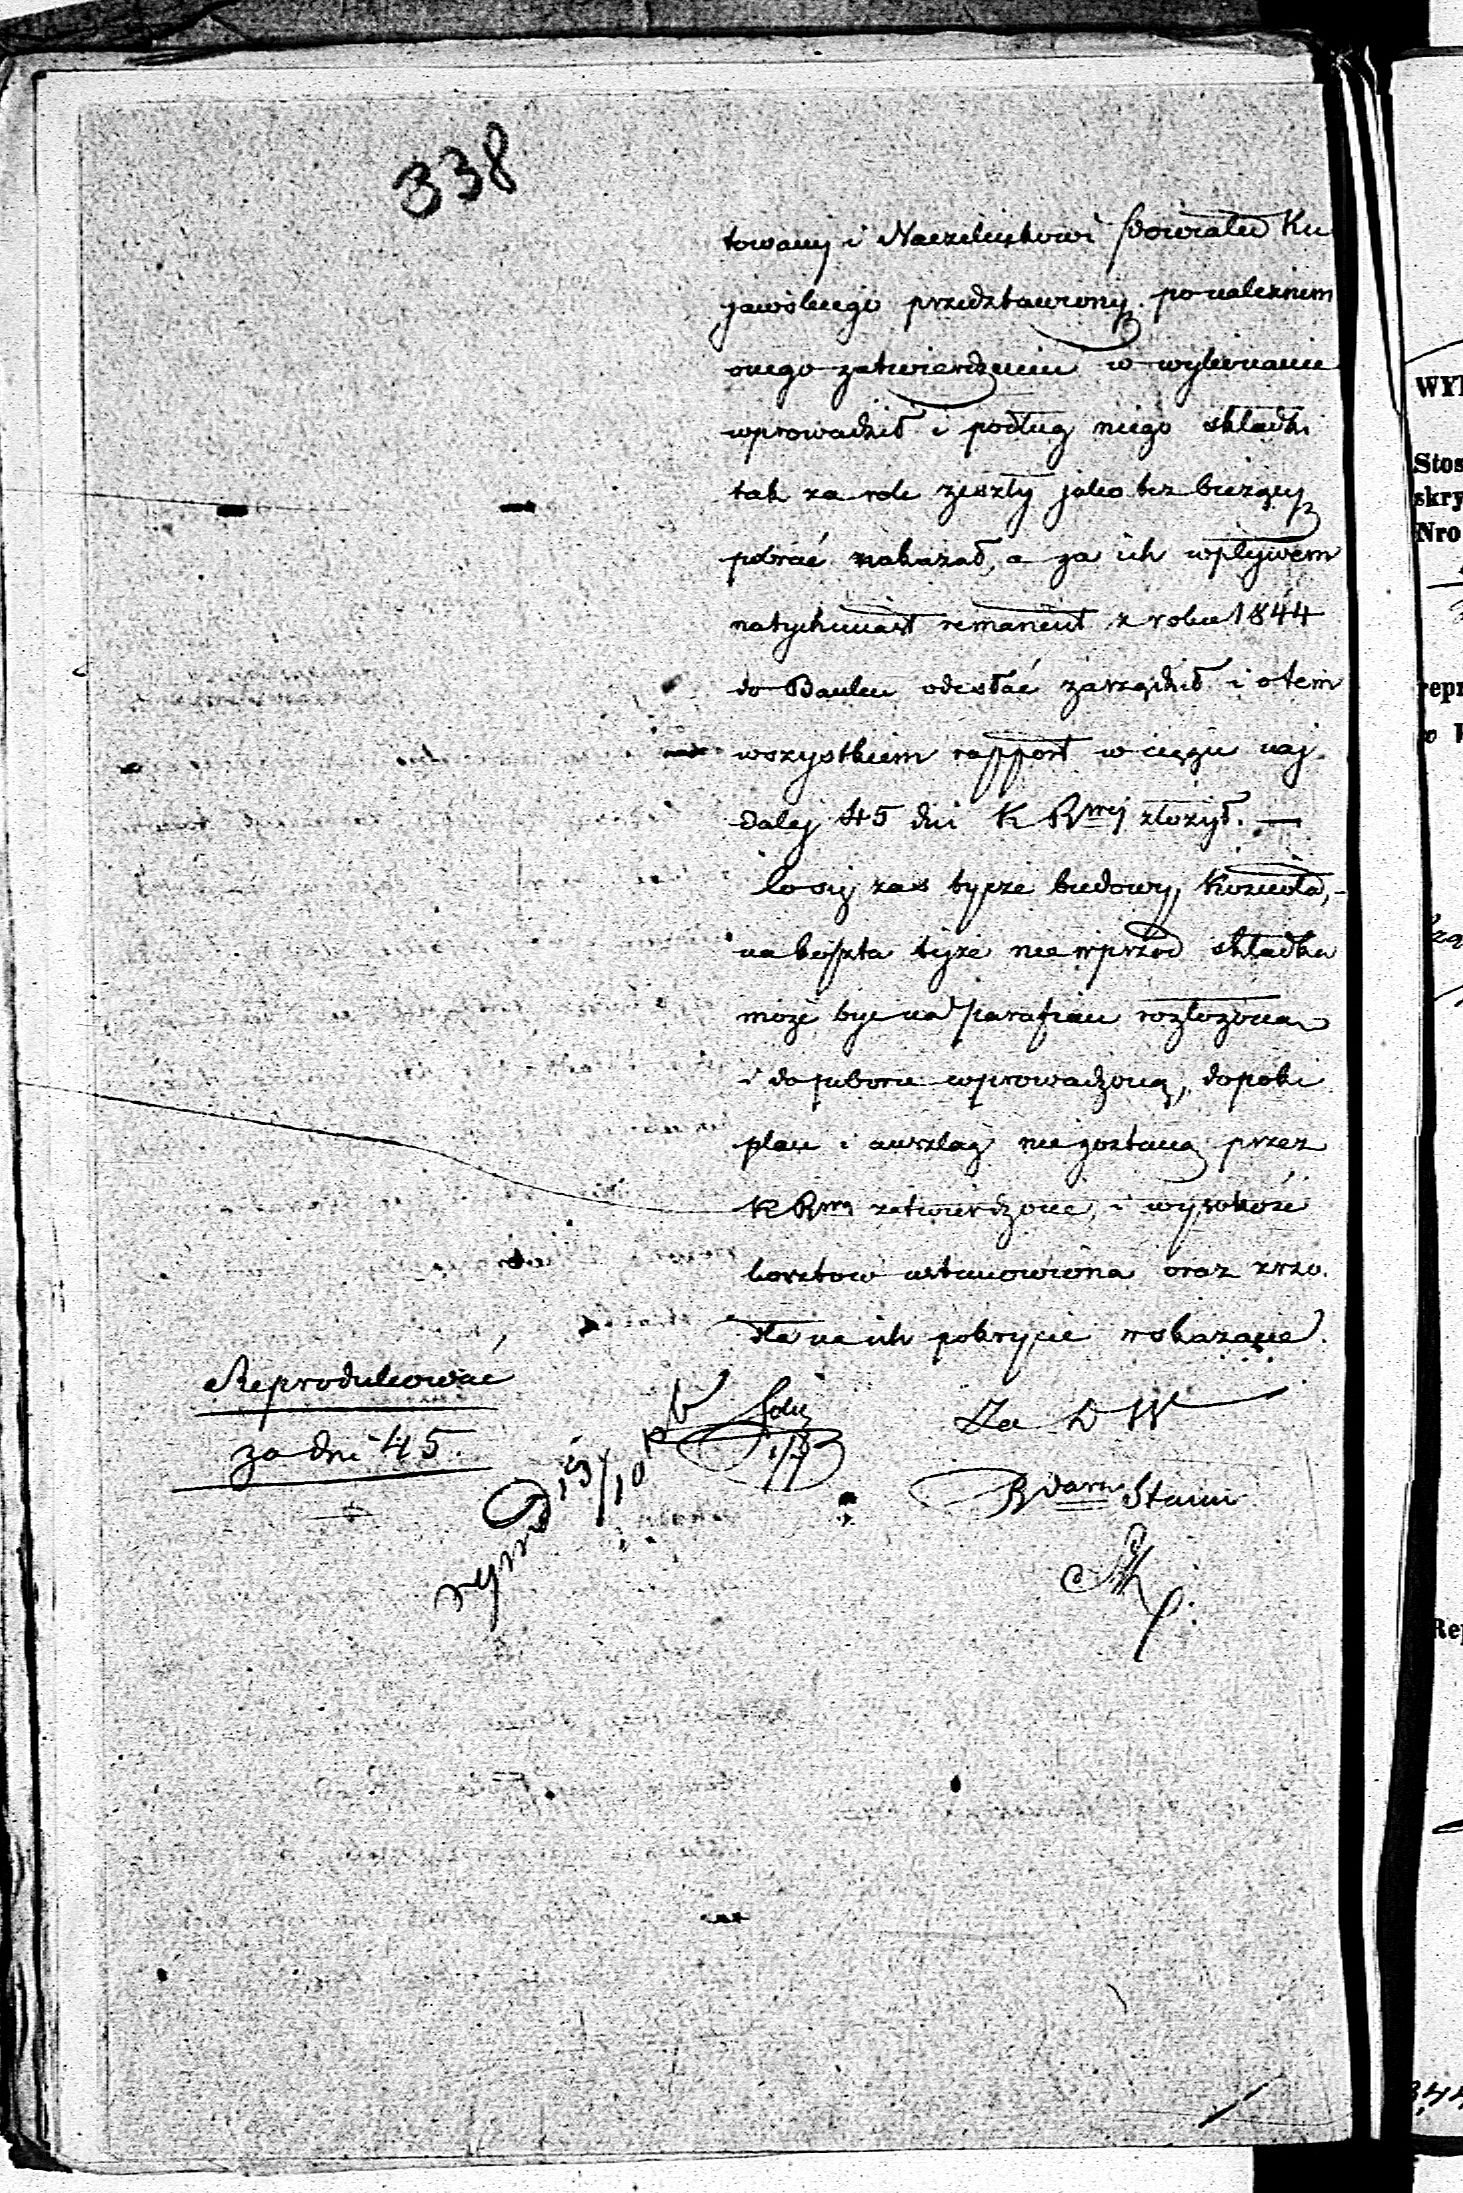 338
towany i Naczelnikowi Powiatu Ku
jawskiego przedstawiony, po należnem
onego zatwierdzeniu w wykonanie
wprowadził i podług niego składki
tak za rok zeszły jako też bieżący
pobrać nakazał, a za ich wpływem
natychmiast remanent z roku 1844
do Banku odesłać zarządził i o tem
wszystkiem rapport w ciągu naj
dalej 45 dni K Rwej złożył. —
Co się zaś tycze budowy Kościoła,
na koszta tejże nie wprzod składka
może być na Parafian rozłożona
i do poboru wprowadzoną, dopoki
plan i anszlag nie zostaną przez
K Rwą zatwierdzone, i wysokość
kosztow ustanowiona oraz zrzo
dła na ich pokrycie wskazane.
Reprodukować
za dni 45.
Za D W